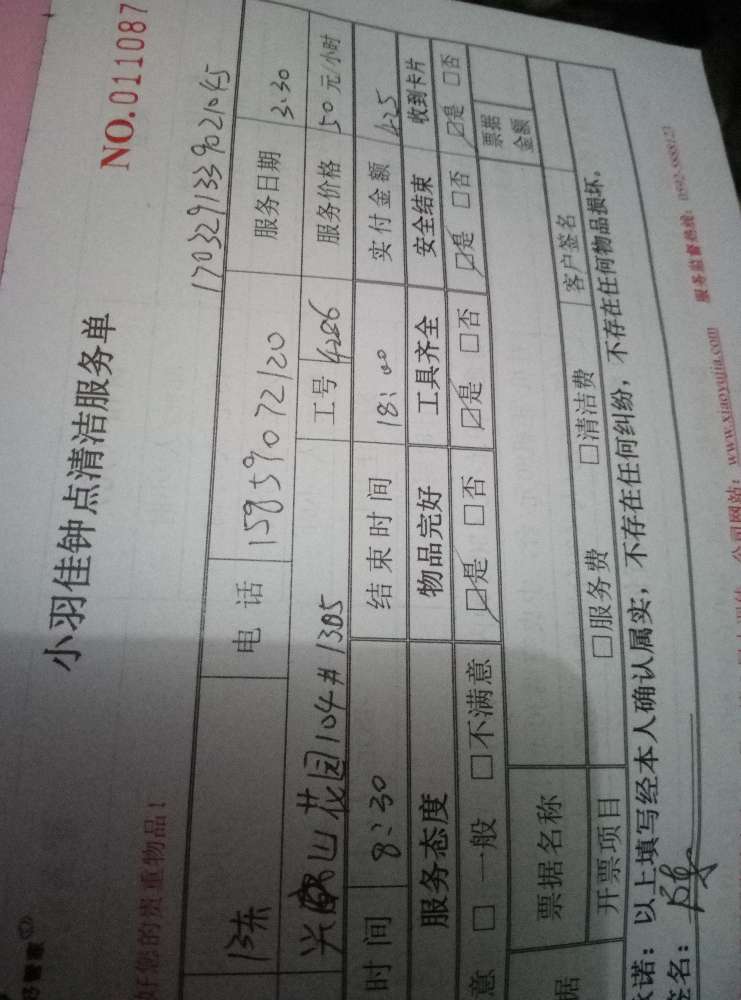 NO.011087
小羽佳钟点清洁服务单
好您的贵重物品！
1703291339021045
电话 15959072120 服务日期 3.30
花园104#1305 工号 4286 服务价格 50元/小时
时间 8:30 结束时间 18:00 实付金额 425
服务态度 物品完好 工具齐全 安全结束 收到卡片
意 □一般 □不满意 ☑是 □否 ☑是 □否 ☑是 □否 ☑是 □否
据 票据名称 票据金额
开票项目 □服务费 □清洁费 客户签名
诺：以上填写经本人确认属实，不存在任何纠纷，不存在任何物品损坏。
签名：
公司网站：www.xiaoyujia.com 服务监督热线：0592-5888123